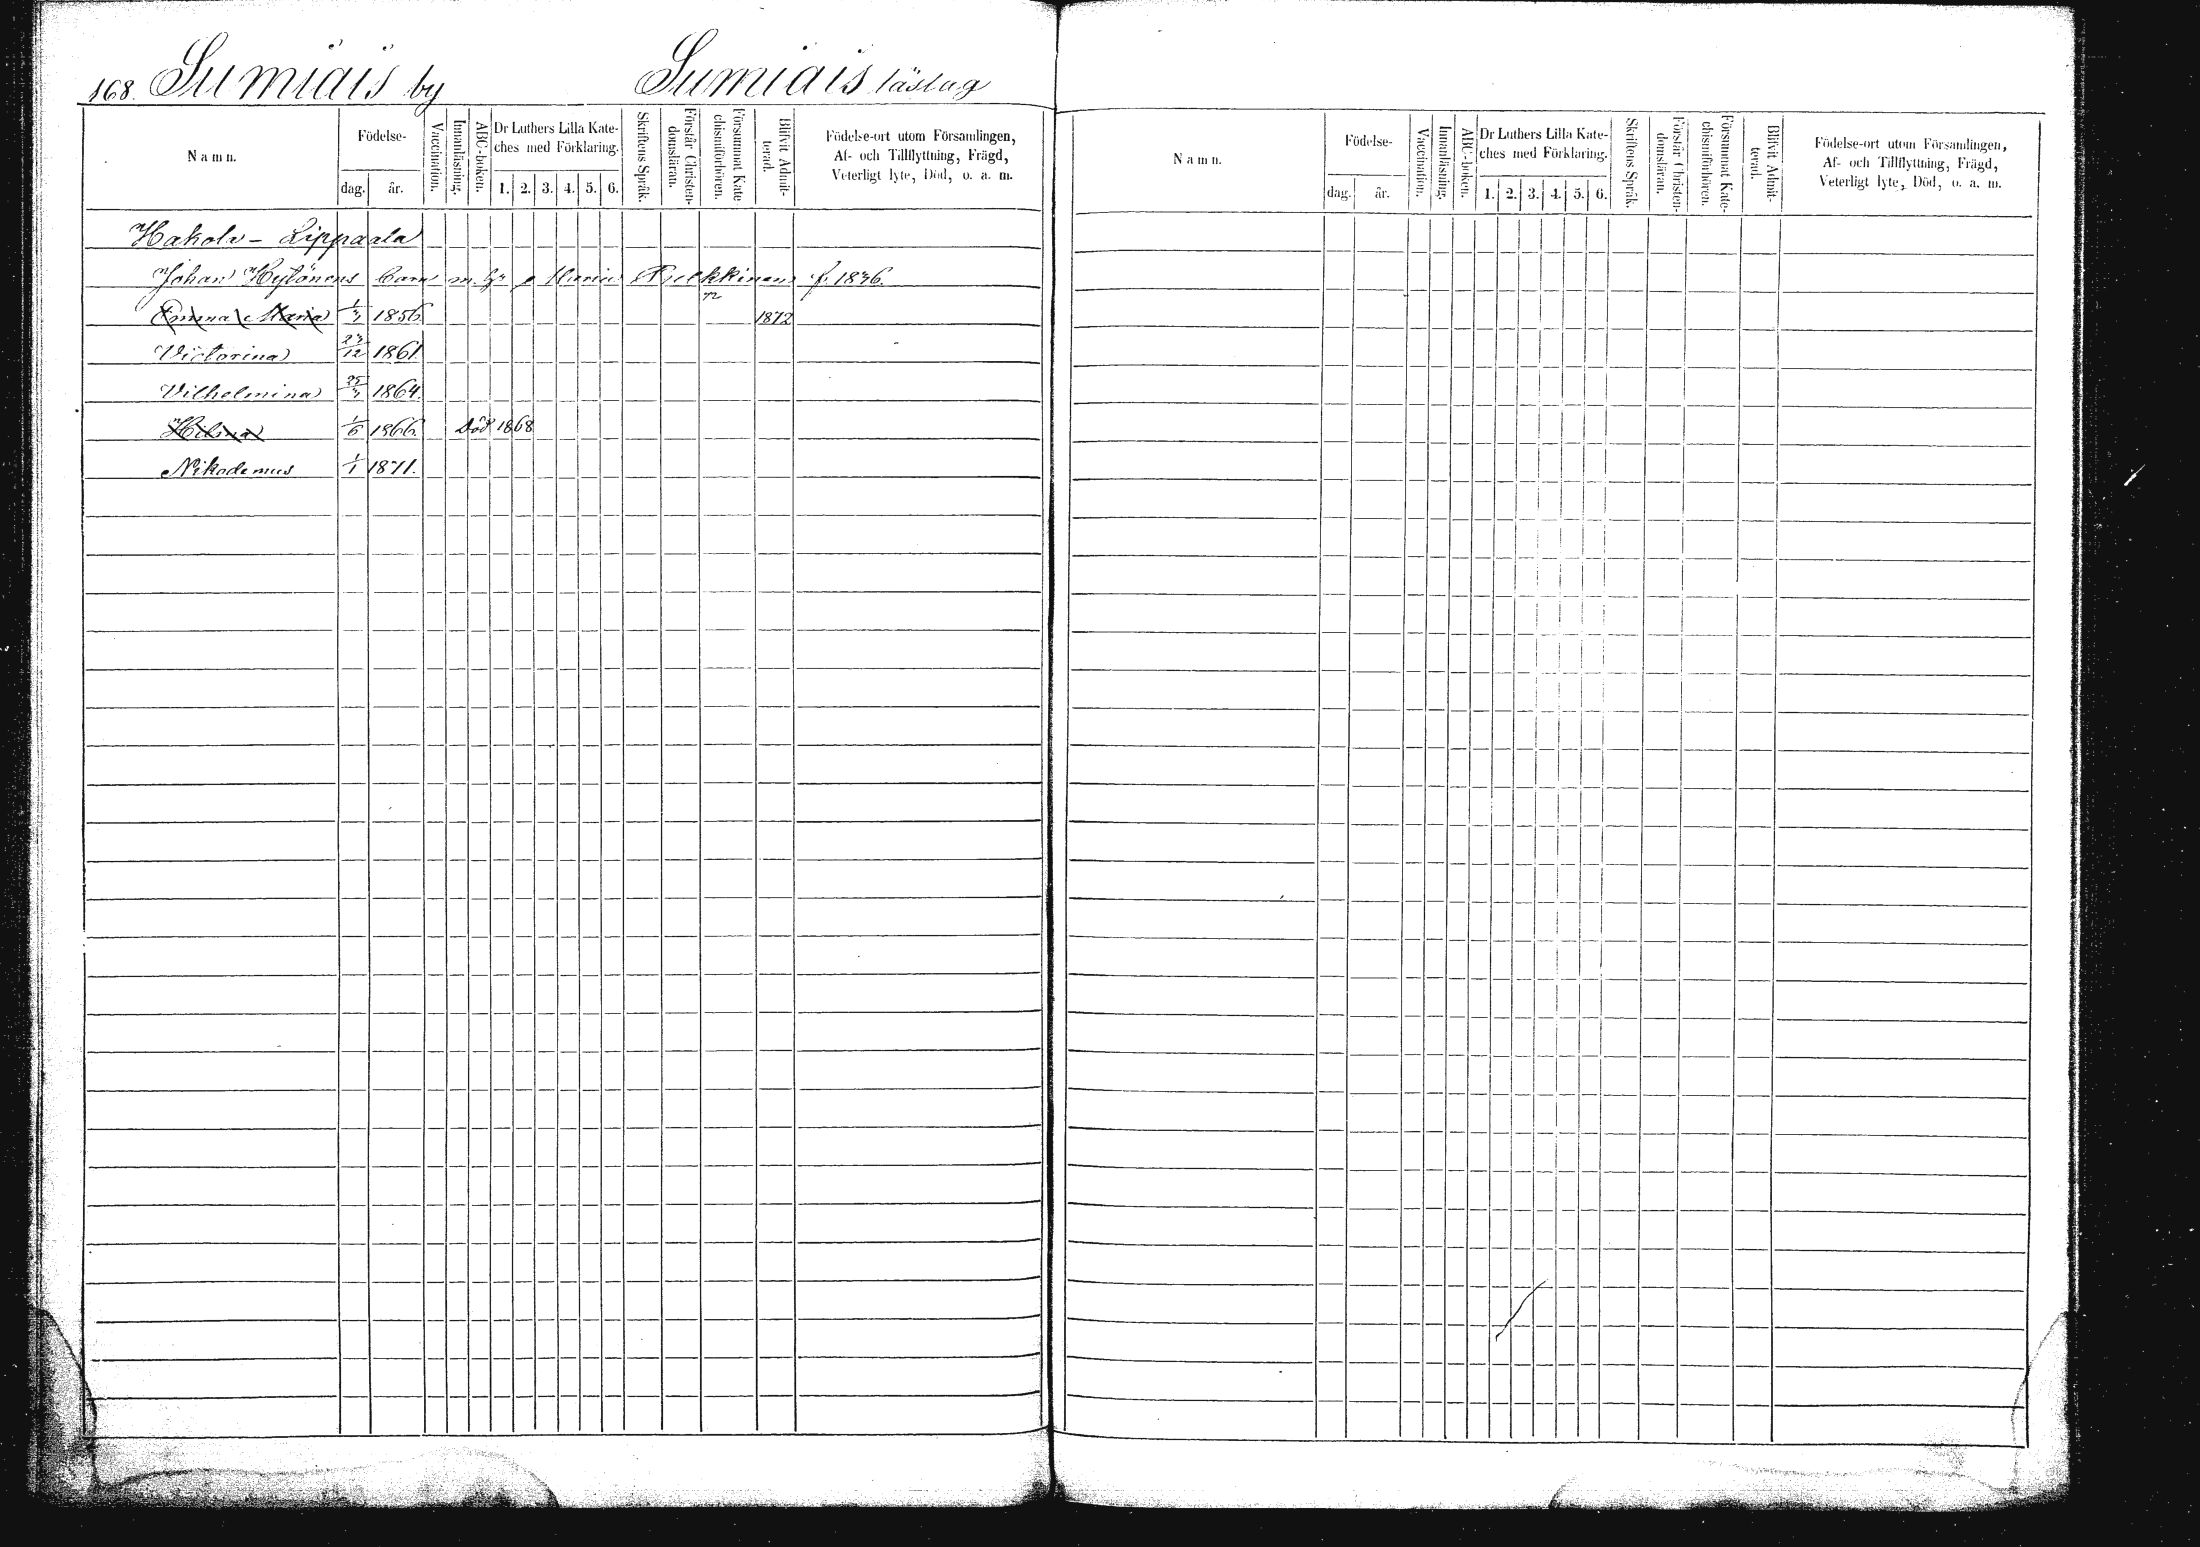 168. Sumiais by Sumiais läslag
Namn. Födelse- dag. år. Vaccination. Innanläsning. ABC-boken. Dr Luthers Lilla Kateches med Förklaring. 1. 2. 3. 4. 5. 6. Skriftens Språk. Förstår Christendomsläran. Försummat Katechismiförhören. Blifvit Admitterad. Födelse-ort utom Församlingen, Af- och Tillflyttning, Frägd, Veterligt lyte, Död, o. a. m.
Hakola - Lippaala
Johan Hytönens barn m. Maria f. 1836.
Emma Maria 1856 72 1872
Victorina 23/12 1861
Vilhelmina 1864.
Hilma 1866. Död 1868
Nikodemus 1/1 1871.
Namn. Födelse- dag. år. Vaccination. Innanläsning. ABC-boken. Dr Luthers Lilla Kateches med Förklaring. 1. 2. 3. 4. 5. 6. Skriftens Språk. Förstår Christendomsläran. Försummat Katechismiförhören. Blifvit Admitterad. Födelse-ort utom Församlingen, Af- och Tillflyttning, Frägd, Veterligt lyte, Död, o. a. m.